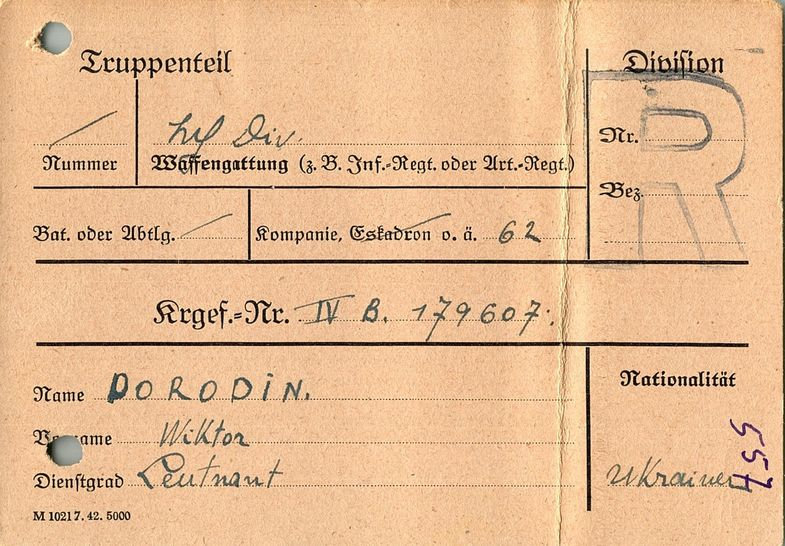 Truppenteil
Division
Inf Div.
Nummer
Waffengattung (z. B. Inf.-Regt. oder Art.-Regt.)
Nr.
Bez.
R
Bat. oder Abtlg.
Kompanie, Eskadron o. ä. 62
Krgef.-Nr. IV B. 179607.
Name DORODIN.
Nationalität
Vorname Wiktor
Dienstgrad Leutnant
Ukrainer
M 10217. 42. 5000